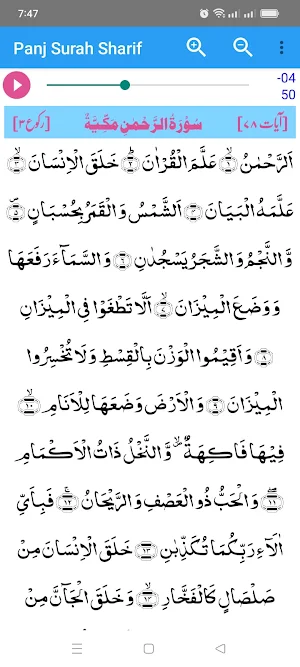 7:47
Panj Surah Sharif
-04
50
[آیات ۷۸] سُوْرَةُ الرَّحْمٰنِ مَكِّيَّةٌ [رکوع ۳]
اَلرَّحْمٰنُ ۙ﴿۱﴾ عَلَّمَ الْقُرْاٰنَ ؕ﴿۲﴾ خَلَقَ الْاِنْسَانَ ۙ﴿۳﴾
عَلَّمَهُ الْبَيَانَ ﴿۴﴾ اَلشَّمْسُ وَالْقَمَرُ بِحُسْبَانٍ ﴿۵﴾
وَّالنَّجْمُ وَالشَّجَرُ يَسْجُدٰنِ ﴿۶﴾ وَالسَّمَآءَ رَفَعَهَا
وَوَضَعَ الْمِيْزَانَ ۙ﴿۷﴾ اَلَّا تَطْغَوْا فِى الْمِيْزَانِ
﴿۸﴾ وَاَقِيْمُوا الْوَزْنَ بِالْقِسْطِ وَلَا تُخْسِرُوا
الْمِيْزَانَ ﴿۹﴾ وَالْاَرْضَ وَضَعَهَا لِلْاَنَامِ ۙ﴿۱۰﴾
فِيْهَا فَاكِهَةٌ ۙ وَّالنَّخْلُ ذَاتُ الْاَكْمَامِ
﴿۱۱﴾ وَالْحَبُّ ذُو الْعَصْفِ وَالرَّيْحَانُ ۚ﴿۱۲﴾ فَبِاَىِّ
اٰلَآءِ رَبِّكُمَا تُكَذِّبٰنِ ﴿۱۳﴾ خَلَقَ الْاِنْسَانَ مِنْ
صَلْصَالٍ كَالْفَخَّارِ ۙ﴿۱۴﴾ وَخَلَقَ الْجَآنَّ مِنْ